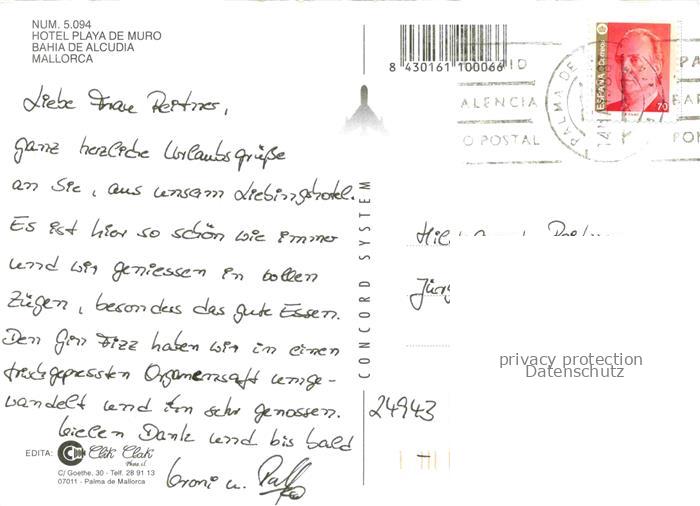 NUM. 5.094
HOTEL PLAYA DE MURO
BAHIA DE ALCUDIA
MALLORCA
8 430161 100066
ESPAÑA
Correos
70
PALMA DE
ALENCIA
O POSTAL
Liebe Frau Reitner,
ganz herzliche Urlaubsgrüße
an Sie, aus unserem Lieblingshotel.
Es ist hier so schön wie immer
und wir geniessen in vollen
Zügen, besonders das gute Essen.
Den Gin Fizz haben wir in einen
frischgepressten Organensaft umge-
wandelt und ihn sehr genossen.
Vielen Dank und bis bald
Vroni u.
CONCORD SYSTEM
Jürg
24943
privacy protection
Datenschutz
EDITA:
Clik Clak
C/ Goethe, 30 - Telf. 28 91 13
07011 - Palma de Mallorca